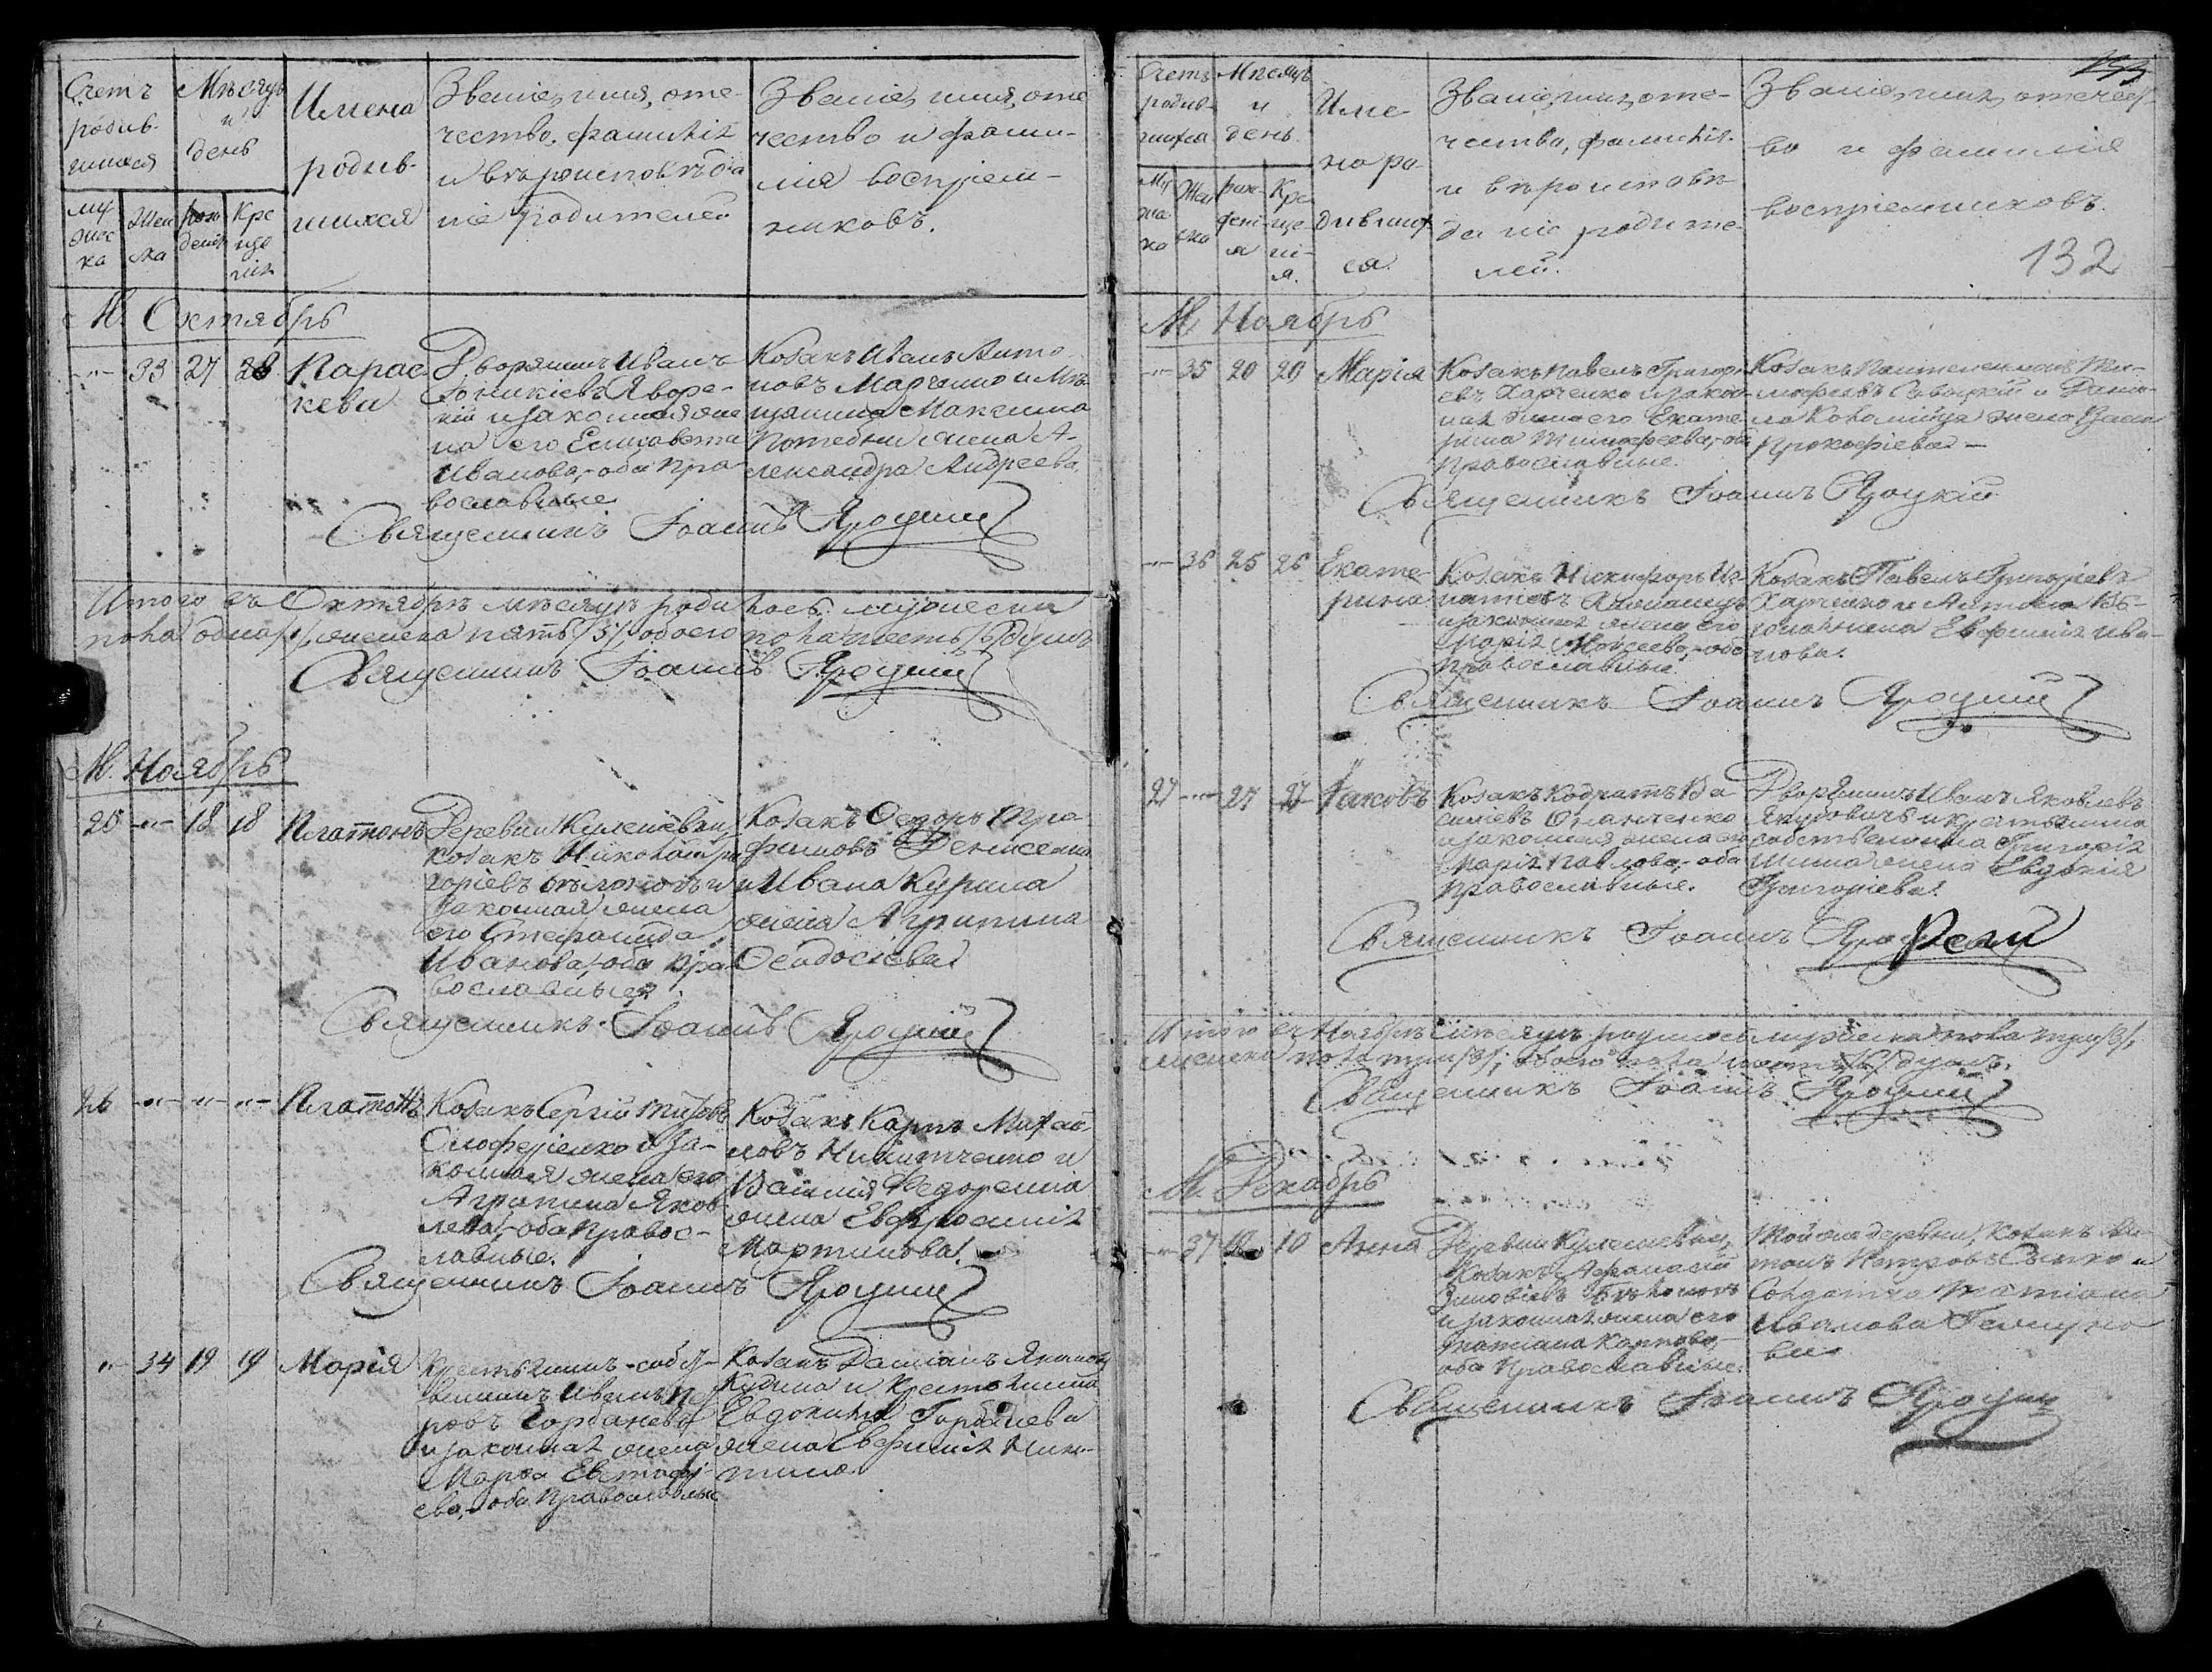 Счетъ родив- шихся
Мѣсяцъ и день
Имена родив- шихся
Званіе, имя, оте-
чество, фамилія
и вѣроисповѣда
ніе родителей
Званіе, имя, оте
чество и фами-
лія воспріем-
никовъ.
му- жес ка
Жен ска
рож денія
Кре ще нія
М. Октябрь
-"- 33 27 28 Парас
кева
Дворянинъ Иванъ
Яворс-
кій и законная же
на его Елисавета
Иванова, оба пра
вославные
Козакъ Иванъ Анто
новъ Марченко и Мѣ-
щанина Максима
Потебни жена А-
лександра Андреева.
Священникъ Іоаннъ Яроцкій
Итого въ Октябрѣ мѣсяцѣ родилось: мужеска
пола одна /1/, женска пять /5/, обоего пола шесть /6/ душъ
Священникъ Іоаннъ Яроцкій
М. Ноябрь
25 -"- 18 18 Платонъ
Деревни Кулешовки,
козакъ Николай Гри
горіевъ и
законная жена
его Стефанида
Иванова, оба пра
вославные
Козакъ Ѳедоръ Тро
фимовъ Денисенко
и Ивана Курила
жена Агрипина
Ѳеодосіева
Священникъ Іоаннъ Яроцкій
26 -"- -"- -"- Платонъ
Козакъ Сергій Титовъ
и за-
конная жена его
Агрипина Яков
лева, оба правос-
лавные.
Козакъ Карпъ Михай
ловъ Никитченко и
Василія Федоренка
жена Евфросинія
Мартинова.
Священникъ Іоаннъ Яроцкій
-"- 34 19 19 Марія
Крестьянинъ-собст-
венникъ Иванъ Пет
ровъ Горбаневъ
и законная жена
Марѳа Евстафі-
ева, оба православные
Козакъ Даміанъ Якимовъ
Кудина и Крестьянина
Евдокима Горбанева
жена Евфимія Ники-
тина
Счетъ родив- шихся
Мѣсяцъ и день
Име на ро- дивших ся.
Званіе, имя, оте-
чество, фамилія
и вѣроисповѣ-
даніе родите-
лей.
Званіе, имя, отечест-
во и фамилія
воспріемниковъ.
Му жес ка
Жен ска
рож- дені- я
Кре- ще ні- я.
132
М. Ноябрь
-"- 35 20 20 Марія
Козакъ Павелъ Григорі-
евъ Харченко и закон-
ная жена его Екате-
рина Тимофеева, оба
православные.
Козакъ Пантелеимонъ Ти-
мофеевъ и Дани-
ла Коломійца жена
Прокофіева —
Священникъ Іоаннъ Яроцкій
-"- 36 25 26 Екате-
рина
Козакъ Никифоръ Иг-
натіевъ
и законная жена его
Марія Моѵсеева, оба
православные.
Козакъ Павелъ Григоріевъ
Харченко и
Евфимія Ива-
нова.
Священникъ Іоаннъ Яроцкій
27 -"- 27 27 Іаковъ
Козакъ Кодратъ Ва
силіевъ
и законная жена его
Марія Павлова, оба
православные.
Дворянинъ Иванъ Яковлевъ
Якубовичъ и крестьянина
собственника Григорія
жена Евдокія
Григоріева.
Священникъ Іоаннъ Яроцкій
Итого въ Ноябрѣ мѣсяцѣ родилось мужеска пола три /3/,
женска пола три /3/, обоего пола шесть /6/ душъ.
Священникъ Іоаннъ Яроцкій
М. Декабрь
-"- 37 10 10 Анна
Деревни Кулешовки,
козакъ Афанасій
Зиновіевъ
и законная жена его
Татіана Карпова,
оба православные.
Той же деревни, козакъ
Петровъ и
Солдатка Татіана
Иванова
Священникъ Іоаннъ Яроцкій